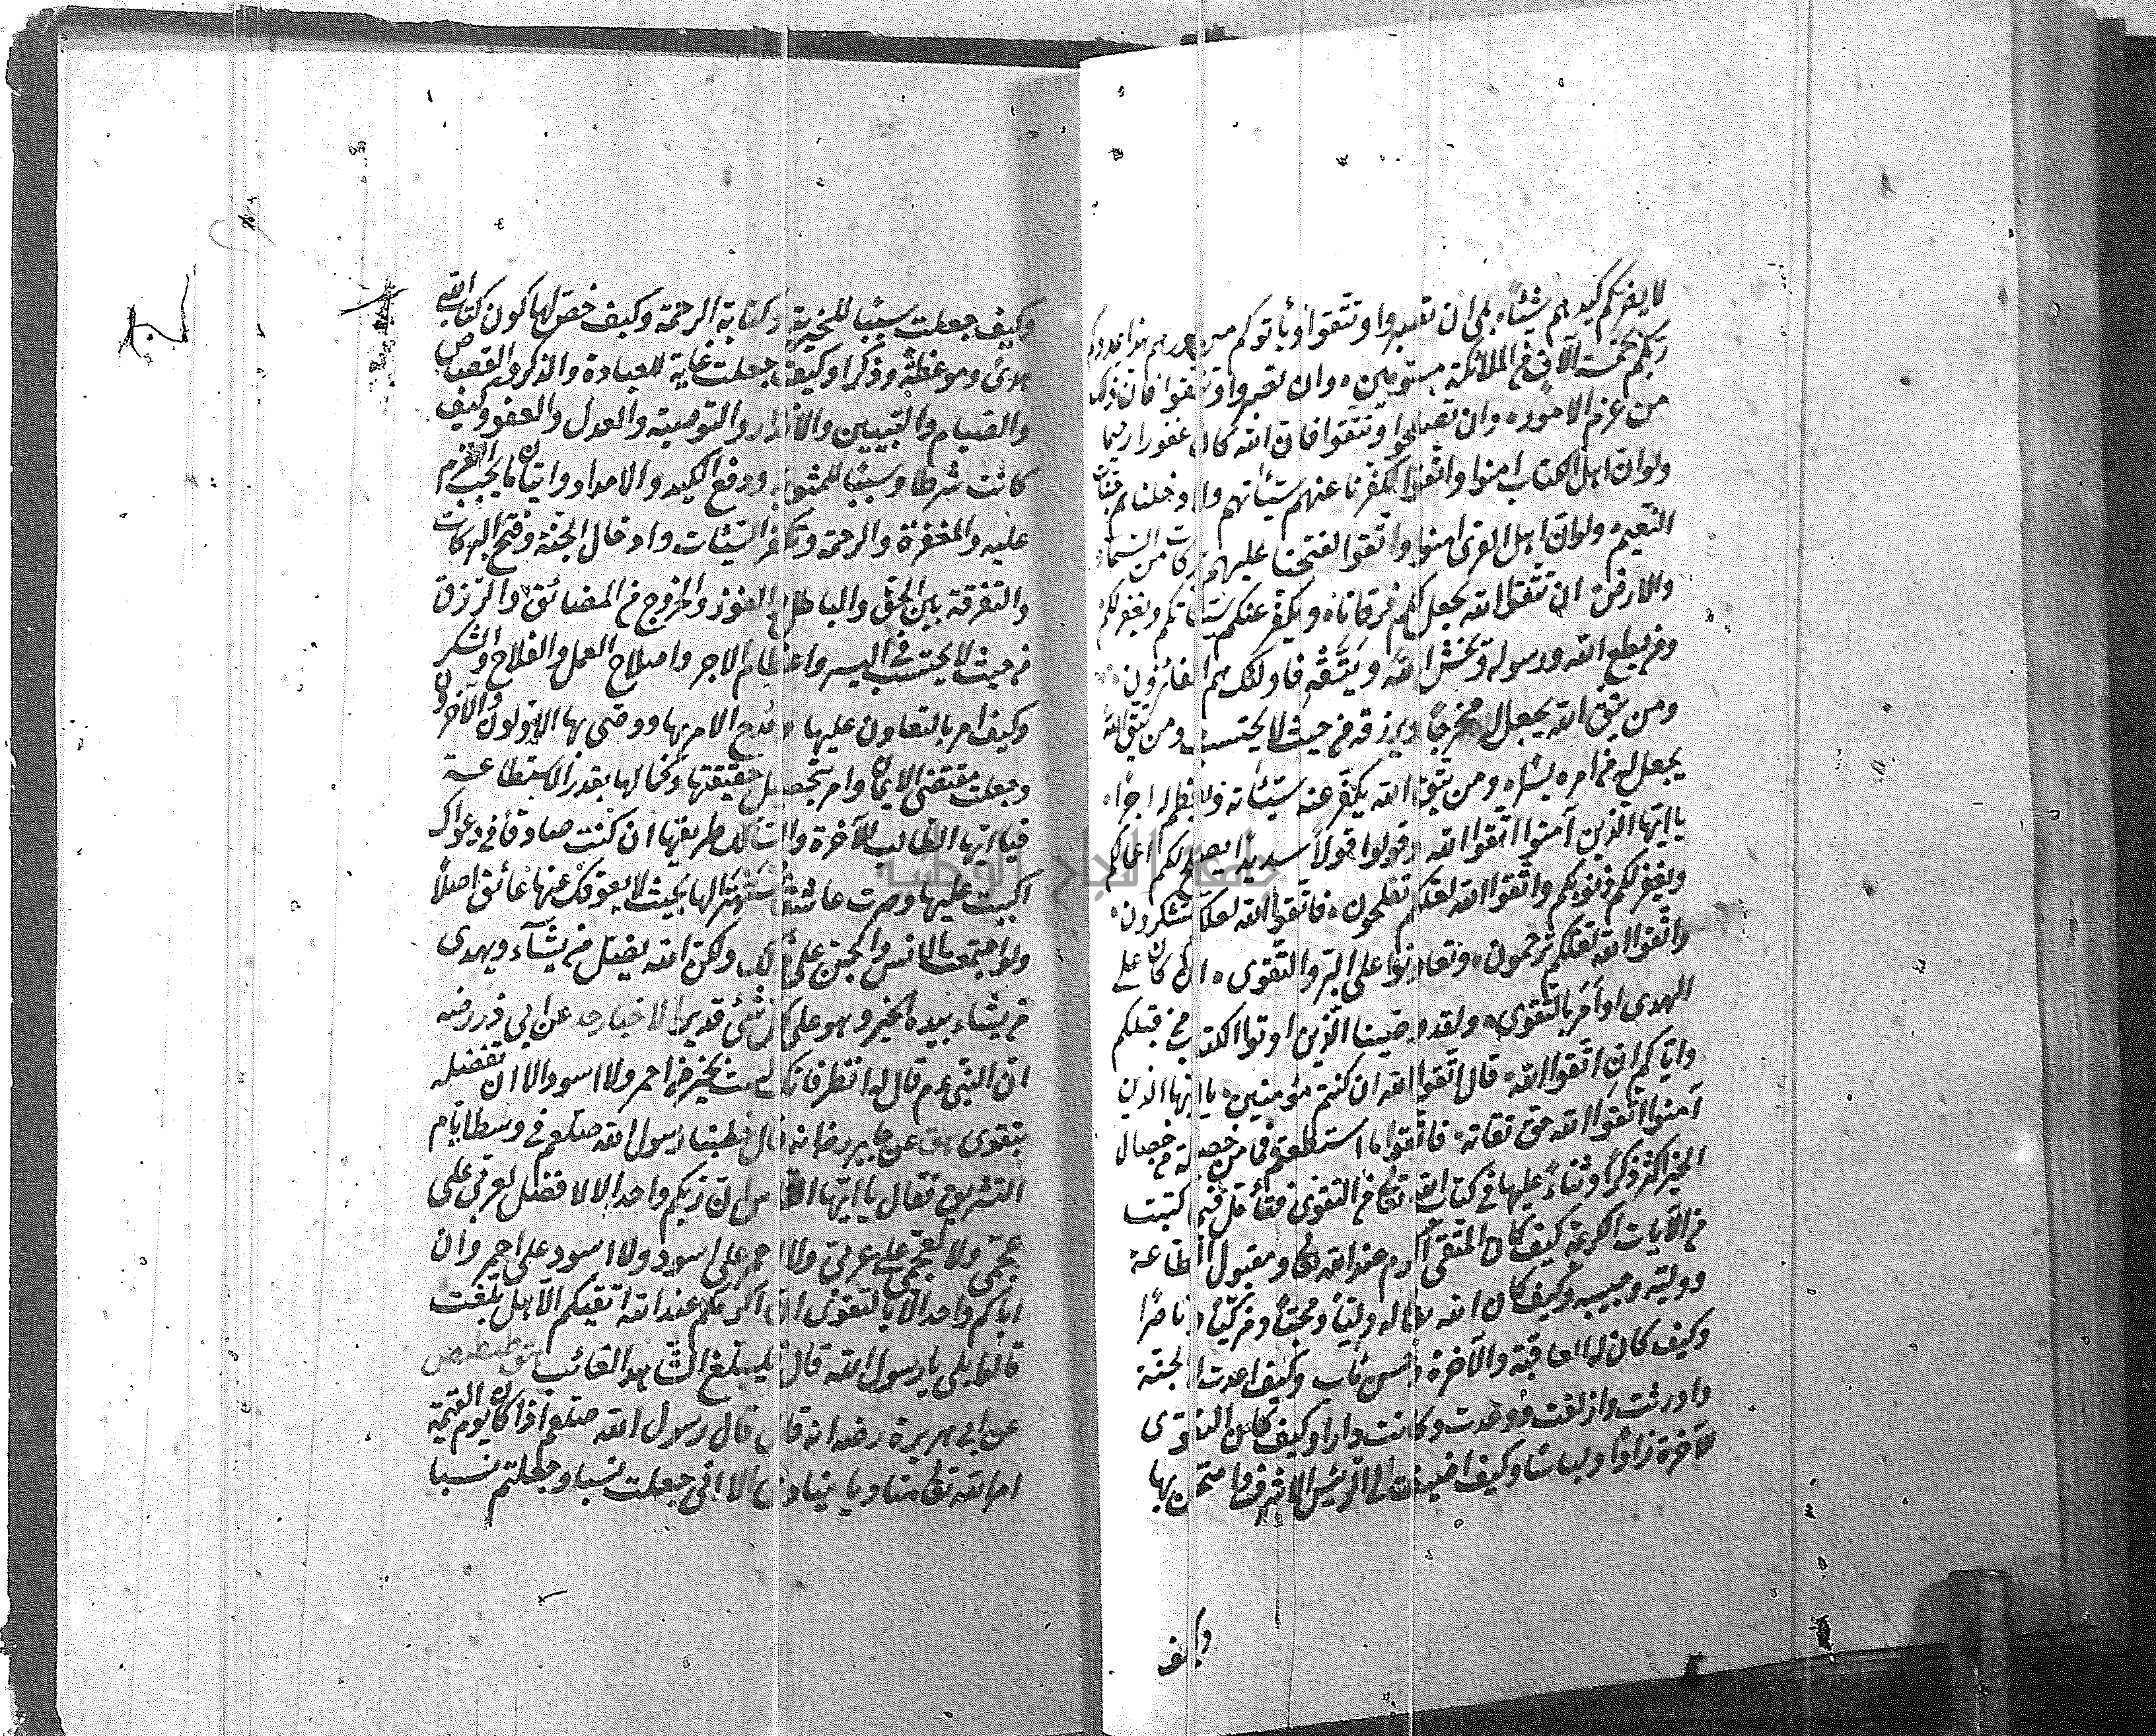 لا يضركم كيدهم شيئا بلى ان تصبروا وتتقوا ويأتوكم من فورهم هذا يمددكم
ربكم بخمسة آلاف من الملائكة مسومين وان تصبروا وتتقوا فان ذلك
من عزم الامور وان تصلحوا وتتقوا فان الله كان غفورا رحيما
ولو ان اهل الكتاب امنوا واتقوا لكفرنا عنهم سيئاتهم ولادخلناهم جنات
النعيم ولو ان اهل القرى امنوا واتقوا لفتحنا عليهم بركات من السماء
والارض ان تتقوا الله يجعل لكم فرقانا ويكفر عنكم سيئاتكم ويغفر لكم
ومن يطع الله ورسوله ويخش الله ويتقه فاولئك هم الفائزون
ومن يتق الله يجعل له مخرجا ويرزقه من حيث لا يحتسب ومن يتق الله
يجعل له من امره يسرا ومن يتق الله يكفر عنه سيئاته ويعظم له اجرا
يا ايها الذين آمنوا اتقوا الله وقولوا قولا سديدا يصلح لكم اعمالكم
ويغفر لكم ذنوبكم واتقوا الله لعلكم تفلحون فاتقوا الله لعلكم تشكرون
واتقوا الله لعلكم ترحمون وتعاونوا على البر والتقوى ان كان على
الهدى او أمر بالتقوى ولقد وصينا الذين اوتوا الكتاب من قبلكم
واياكم ان اتقوا الله قال اتقوا الله ان كنتم مؤمنين يا ايها الذين
آمنوا اتقوا الله حق تقاته فاتقوا ما استطعتم فما من خصلة من خصال
الخير اكثر ذكرا وثناء عليها في كتاب الله تعالى من التقوى فتأمل فيما كتبت
من الآيات الكريمة كيف كان المتقى اكرم عند الله تعالى ومقبول الطاعة
ووليه وحبيبه وكيف كان الله تعالى له وليا ومحبا ومزكيا وناصرا
وكيف كان له العاقبة والآخرة وحسن مآب وكيف اعدت الجنة
واورثت وازلفت ووعدت وكانت دارا وكيف كان التقوى
للآخرة زادا ولباسا وكيف اضيفت الى الرئيس الاشرف وامتحن بها
وكيف
وكيف جعلت سببا للخيرية وكتابة الرحمة وكيف خص لها كون كتاب الله
هدى وموعظة وذكرا وكيف جعلت غاية للعبادة والذكر والقصاص
والصيام والتبيين والانذار والتوصية والعدل والعفو وكيف
كانت شرطا وسببا للمثوبة ودفع الكيد والامداد واتيان ما يجب العزم
عليه والمغفرة والرحمة وتكفير السيئات وادخال الجنة وفتح البركات
والتفرقة بين الحق والباطل والفوز والخروج من المضائق والرزق
من حيث لا يحتسب واليسر واعظام الاجر واصلاح العمل والفلاح والشكر
وكيف امر بالتعاون عليها ومدح الامر بها ووصى بها الاولون والآخرون
وجعلت مقتضى الايمان وامر بتحصيل حقيقتها وكمالها بقدر الاستطاعة
فيا ايها الطالب للآخرة والسالك طريقها ان كنت صادقا في دعواك
اكببت عليها وصرت عاشقا لها بحيث لا يعوقك عنها عائق اصلا
ولو اجتمعت الانس والجن على ذلك ولكن الله يضل من يشآء ويهدى
من يشاء بيده الخير وهو على كل شئ قدير الاخبار حد عن ابى ذر رضه
ان النبى عم قال له انظر فانك لست بخير من احمر ولا اسود الا ان تفضله
بتقوى هق عن جابر رض انه قال خطبنا رسول الله صلعم في وسط ايام
التشريق فقال يا ايها الناس ان ربكم واحد الا لا فضل لعربى على
عجمى ولا لعجمى على عربى ولا لاحمر على اسود ولا اسود على احمر وان
اباكم واحد الا بالتقوى ان اكرمكم عند الله اتقيكم الا هل بلغت
قالوا بلى يا رسول الله قال فليبلغ الشاهد الغائب هق
عن ابى هريرة رضه انه قال قال رسول الله صلعم اذا كان يوم القيمة
امر الله تعالى مناديا ينادى الا انى جعلت نسبا وجعلتم نسبا
جامعة النجاح الوطنية